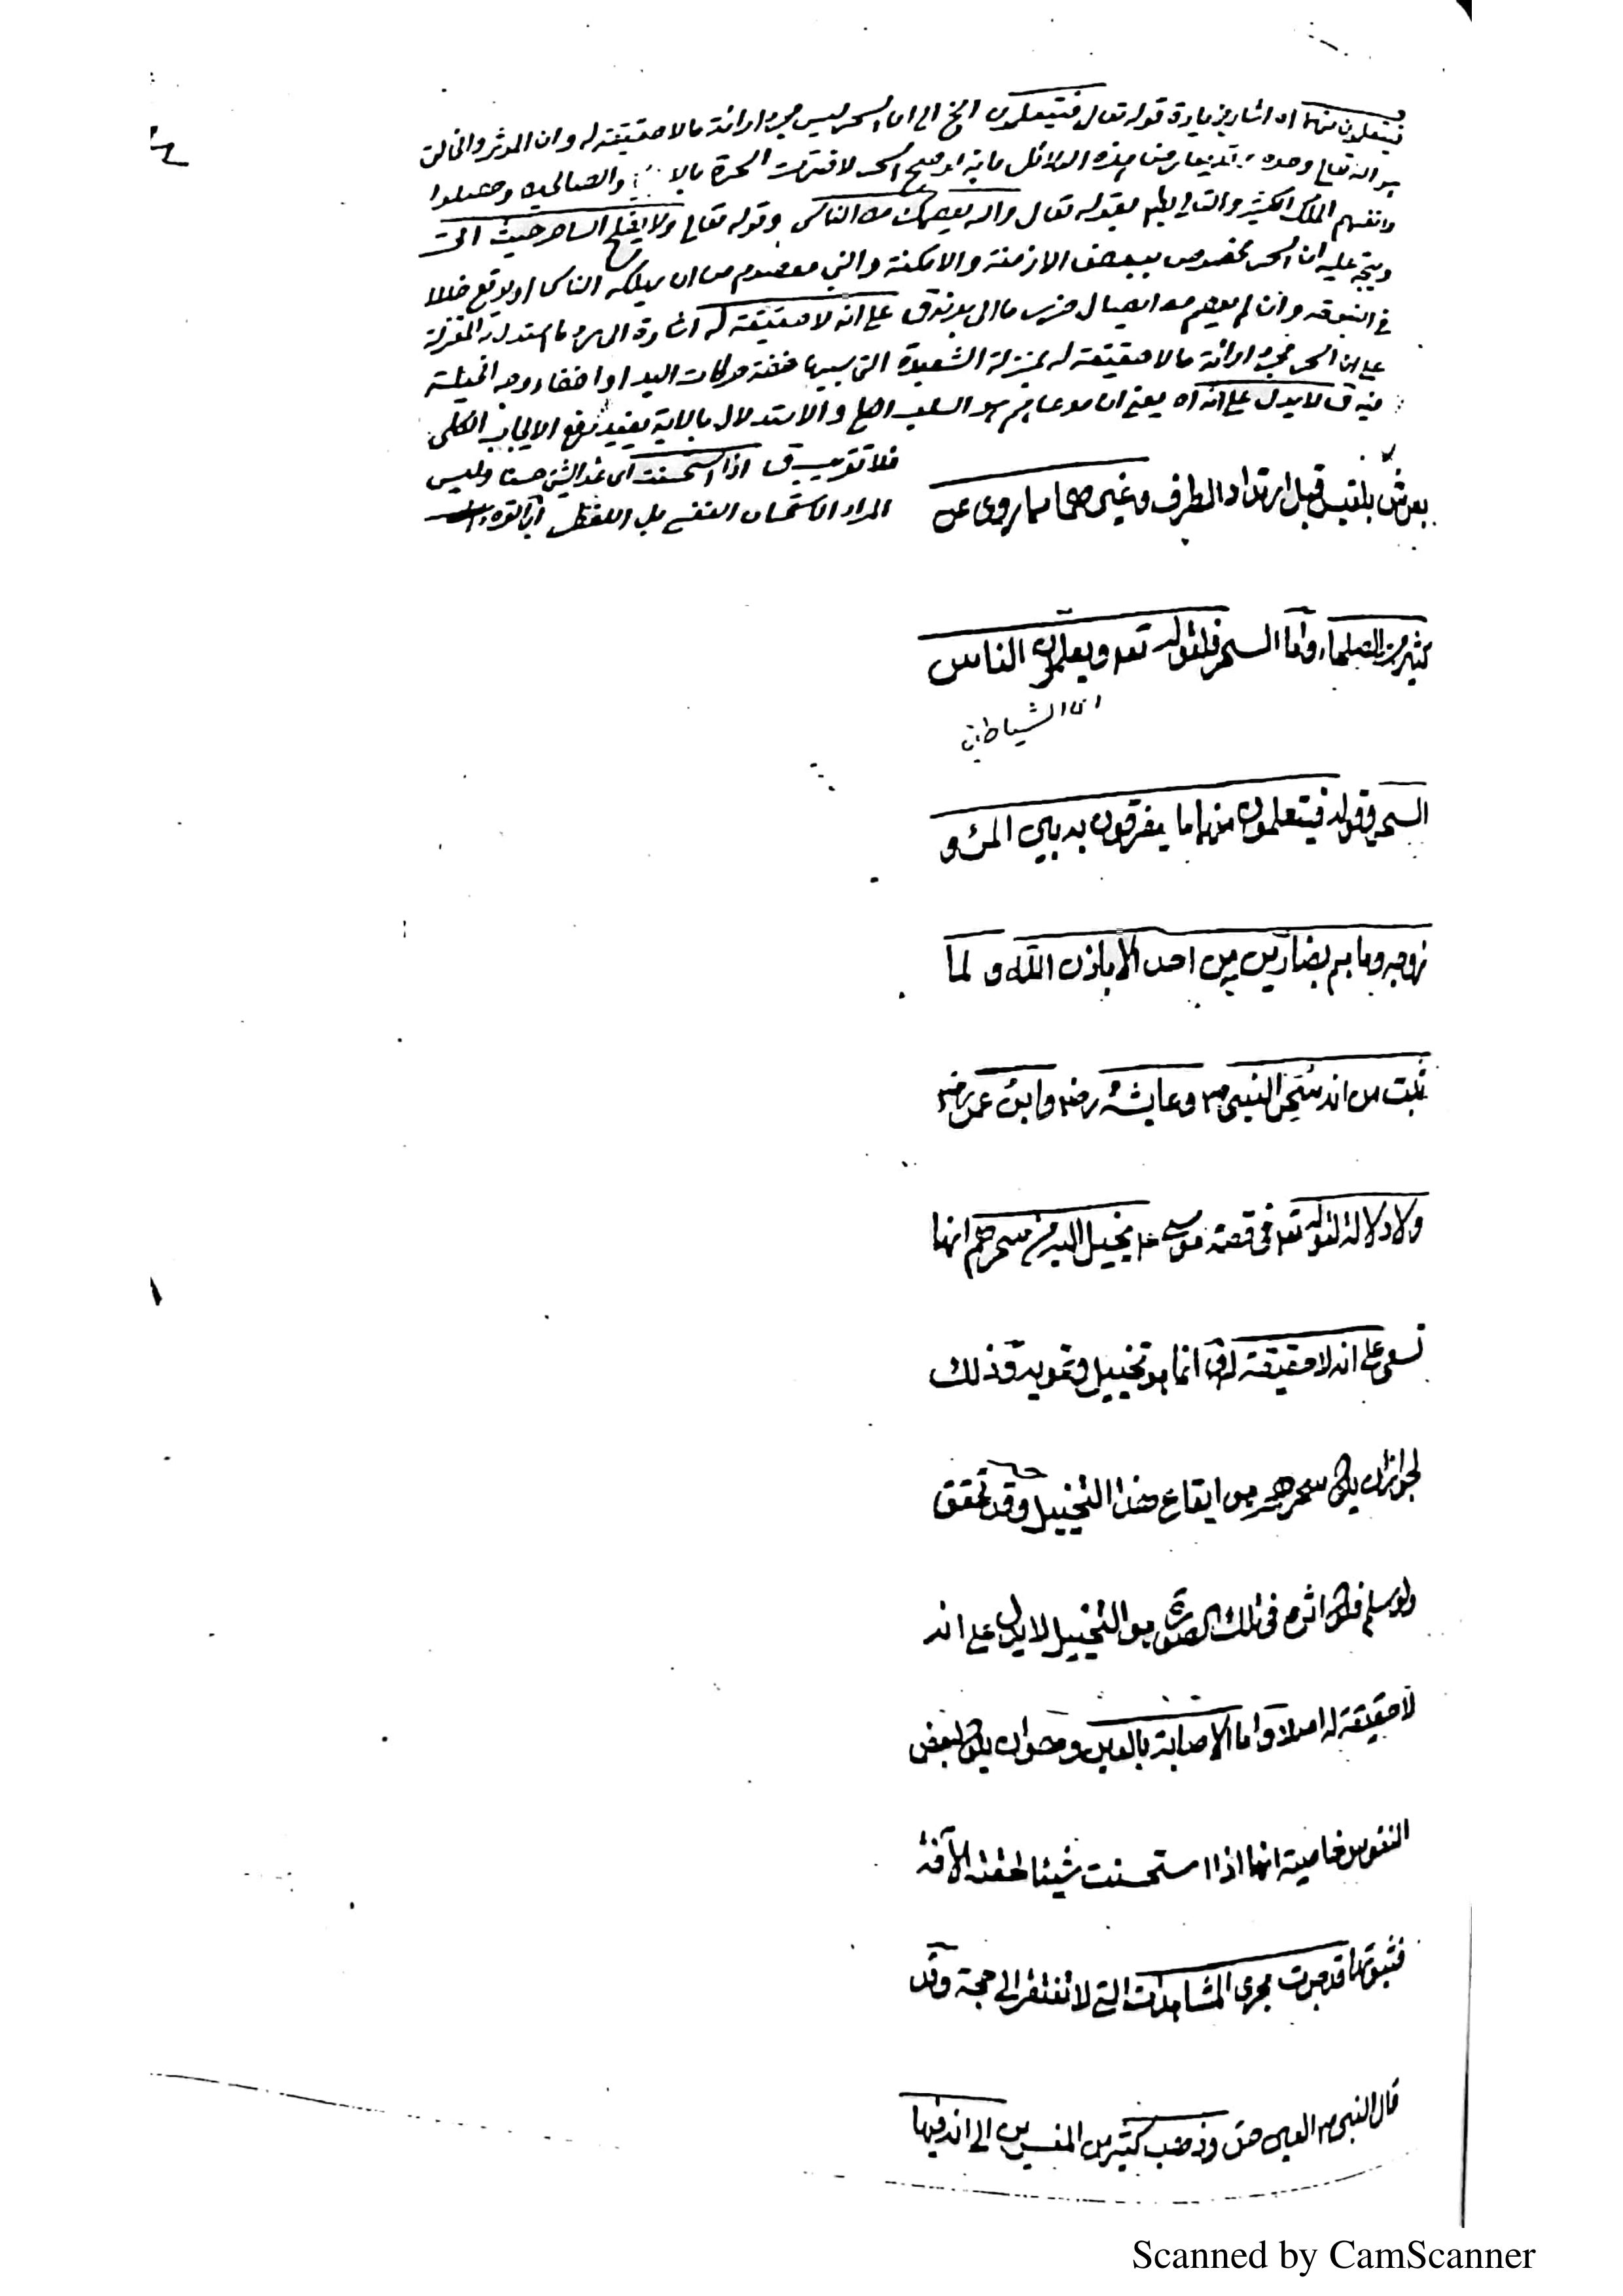 فيتعلمون منهما اه اشار بزيادة قوله تعالى فيتعلمون الخ الى ان السحر ليس مجرد اراءة مالا حقيقة له وان المؤثر والخالق
هو الله تعالى وحده هذه الدلائل بانه لو صح السحر لاضرت السحرة والصالحين وحصلوا
لانفسهم الملك الكثير والتالى بط بقوله تعالى والله يعصمك من الناس وقوله تعالى ولا يفلح الساحر حيث اتى
ويتجه عليه ان السحر مخصوص ببعض الازمنة والامكنة والنبى معصوم من ان يهلكه الناس او يوقع خللا
فى النبوة وان لم يعصم من ايصال ضرر ما الى بدنه ق على انه لا حقيقة له اشارة الى رد ما استدل به المعتزلة
على ان السحر مجرد اراءة مالا حقيقة له بمنزلة الشعبدة التى سببها خفة حركات اليد او اخفاء وجه الحيلة
فيه ق لا يدل على انه اه يعنى ان مدعاهم هو السلب الكلى والاستدلال بالاية يفيد رفع الايجاب الكلى
فلا تقريب ق اذا استحسنت اى عد الشئ حسنا وليس
المراد الاستحسان النفسى بل اللفظى
بعرش بلقيس قبل ارتداد الطرف وغيرهما مما روى عن
كثير من الصلحاء وأما السحر فلقوله تعه ويعلمون الناس
اى الشياطين
السحر وقوله فيتعلمون منهما ما يفرقون به بين المرء و
زوجه وما هم بضارين به من احد الا باذن الله و لما
ثبت من انه سُحِر النبى ص م وعايشة رضه وابن عمر رضه
ولا دلالة لقوله تعه فى قصة موسى عم يخيل اليه من سحرهم انها
تسعى على انه لا حقيقة له وانما هو تخييل وتمويه وذلك
لجواز ان يكون سحرهم هو ايقاع هذا التخييل وقد تحقق
ولو سلم فكون اثره فى تلك الصورة هو التخييل لا يدل على انه
لا حقيقة له اصلا وأما الاصابة بالعين وهو ان يكون لبعض
النفوس خاصية انها اذا استحسنت شيئا لحقته الآفة
فثبوتها قد جرت مجرى المشاهدات التى لا تفتقر الى حجة وقد
قال النبى ص م العين حق وذهب كثير من المفسرين الى انه فيها
Scanned by CamScanner